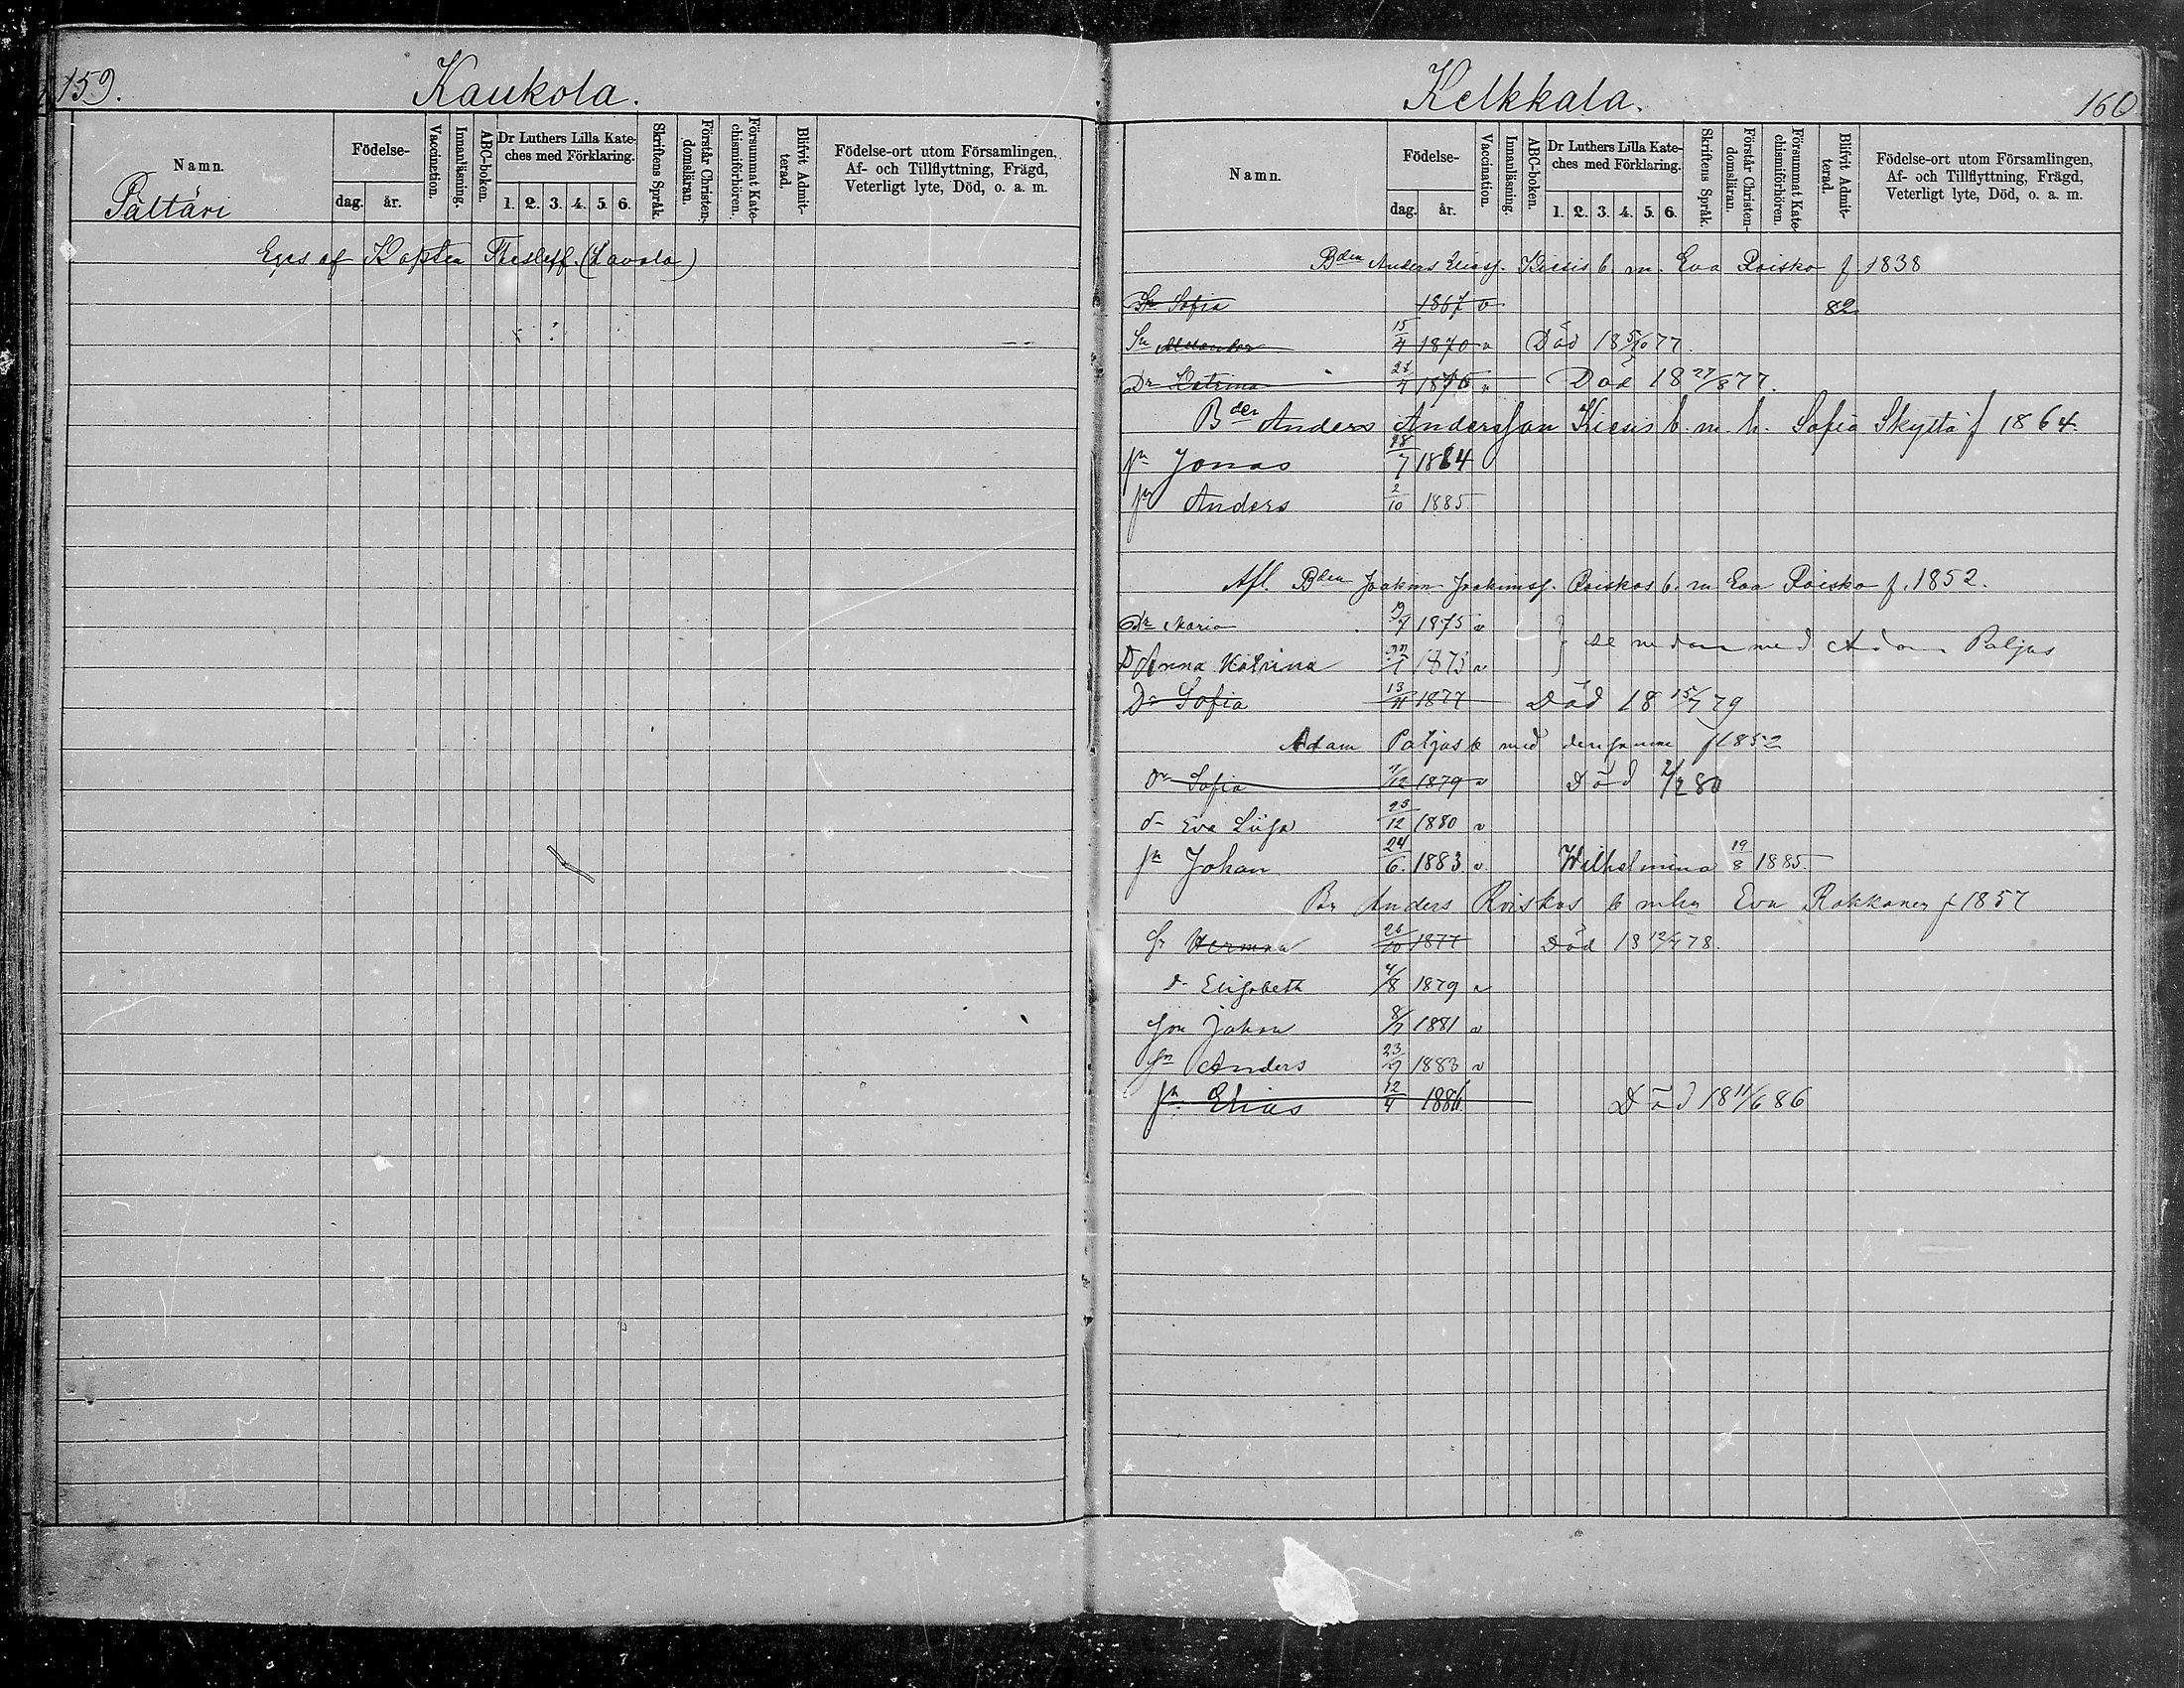 159.
Kaukola.
Namn.
Födelse-
dag.
år.
Vaccination.
Innanläsning.
ABC-boken.
Dr Luthers Lilla Kate-
ches med Förklaring.
1. 2. 3. 4. 5. 6.
Skriftens Språk.
Förstår Christen-
domsläran.
Försummat Kate-
chismiförhören.
Blifvit Admit-
terad.
Födelse-ort utom Församlingen,
Af- och Tillflyttning, Frägd,
Veterligt lyte, Död, o. a. m.
Pältäri
Eges af Kapten Thesleff. (Lavola)
Kelkkala.
160
Namn.
Födelse-
dag.
år.
Vaccination.
Innanläsning.
ABC-boken.
Dr Luthers Lilla Kate-
ches med Förklaring.
1. 2. 3. 4. 5. 6.
Skriftens Språk.
Förstår Christen-
domsläran.
Försummat Kate-
chismiförhören.
Blifvit Admit-
terad.
Födelse-ort utom Församlingen,
Af- och Tillflyttning, Frägd,
Veterligt lyte, Död, o. a. m.
Bden Anders Eliasf. Kiesis b. m. Eva Roisko f. 1838
Dr Sofia 1867 v 82
Sn 15/4 1870 v Död 18 5/10 77.
Dr Katrina 1875 v Död 18 27/8 77.
Bden Anders Andersson Kiesis b. m. h. Sofia Skyttä f 1864.
sn Jonas 28/7 1884
sn Anders 2/10 1885
Afl. Bden Joakim Joakimsf. Roiskos b. m Eva Roisko f. 1852.
Dr Maria 1875 v
D Anna Katrina 1875 v } se nedan med Adam Paljas
Dr Sofia 13/11 1877 Död 18 15/7 79
Adam Paljas b med densamma f 1852
dr Sofia 1879 v Död 2/2 80
dr Eva Liisa 25/12 1880 v
sn Johan 24/6. 1883. v. Wilhelmina 19/8 1885.
Br Anders Roiskos b mhu Eva Rokkanen f 1857
sn Herman 26/10 1877 Död 18 12/4 78.
dr Elisabeth 4/8 1879 v
son Johan 8/7 1881 v
sn Anders 23/9 1883 v
sn Elias 12/4 1886. Död 18 11/6 86